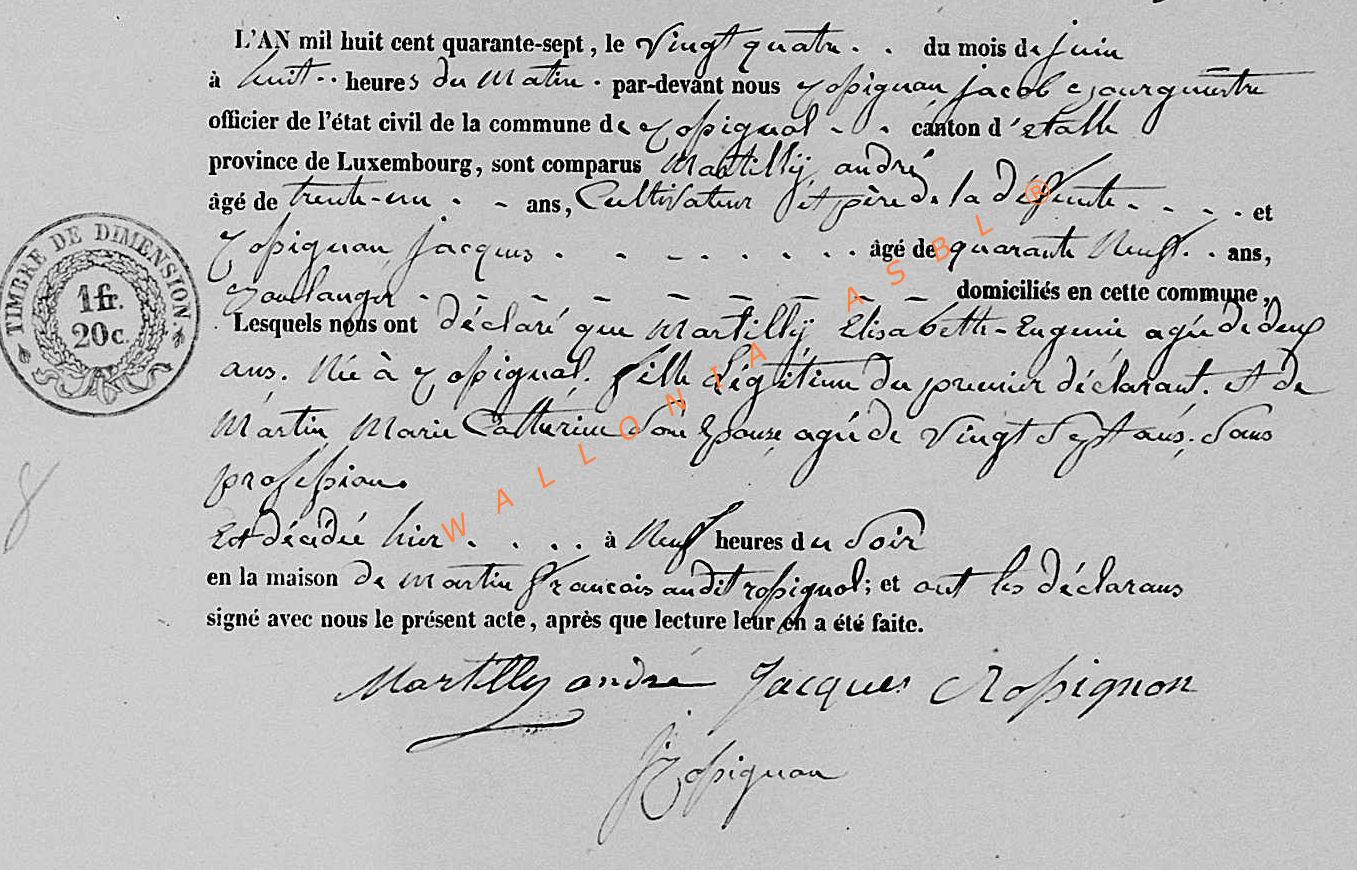 L'AN mil huit cent quarante-sept, le Vingt quatre . . du mois de juin
à huit .. heures du Matin . par-devant nous Rossignon jacob Bourgmestre
officier de l'état civil de la commune de Rossignol . . canton d'etalle
province de Luxembourg, sont comparus Martilly andré
âgé de trente-un . - ans, Cultivateur et père de la défunte - - - - et
Rossignon jacques . . - - . . . . âgé de quarante Neuf . . ans,
Boulanger - - - - - - - - - domiciliés en cette commune,
Lesquels nous ont déclaré que Martilly Elisabeth-Eugenie agée de deux
ans. Née à Rossignol. fille Légitime du premier déclarant. et de
Martin Marie Catherine Son Epouse agée de Vingt Sept ans. Sans
profession.
Est décédée hier . . . . à Neuf heures du Soir
en la maison de Martin francois audit rossignol; et ont les déclarans
signé avec nous le présent acte, après que lecture leur en a été faite.
Martilly andré Jacques Rossignon
J Rossignon
TIMBRE DE DIMENSION
1 fr.
20 c.
8
WALLONIA ASBL ®